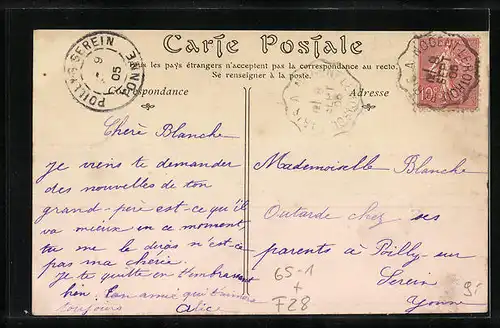 Carte Postale
les pays étrangers n'acceptent pas la correspondance au recto.
Se renseigner à la poste.
Correspondance
Adresse
POILLY-S-SEREIN
YONNE
9
05
Chère Blanche
je viens te demander
des nouvelles de ton
grand-père est-ce qu'il
va mieux en ce moment,
tu me le diras n'est-ce
pas ma chérie.
Je te quitte en t'embrassant
bien. Ton amie qui t'aimera
toujours Alice
Mademoiselle Blanche
Outarde chez ses
parents à Poilly-sur
Serein
Yonne
65-1
+
F28
10